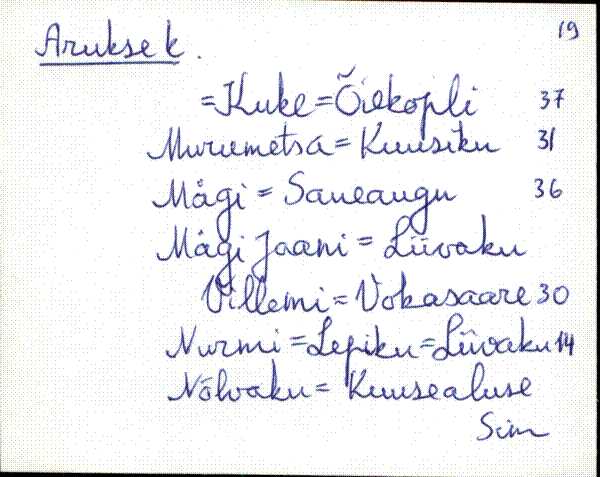 19
Aruksek.
=Kuke=Õilkopli 37
Murumetsa=Kuusiku 31
Mägi = Saueaugu 36
Mägi Jaani = Liivaku
Villemi = Vokasaare 30
Nurmi =Lepiku=Liivaku 14
Nõlvaku= Kuusealuse
Sim